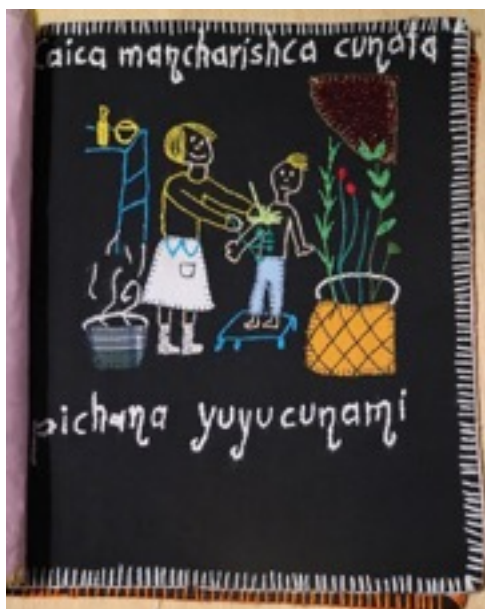 Caica mancharishca cunata
pichana yuyucunami